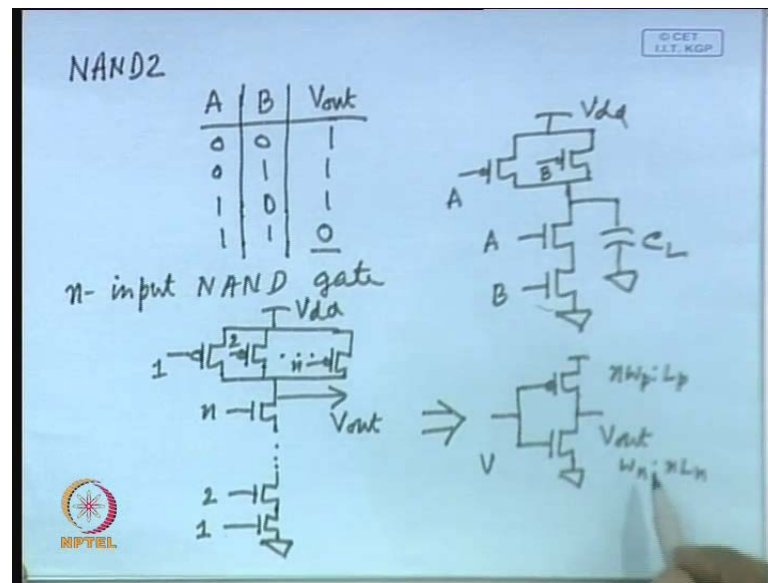 © CET
I.I.T. KGP
NAND2
A B Vout
0 0 1
0 1 1
1 0 1
1 1 0
Vdd
A
B
A
B
CL
n-input NAND gate
Vdd
1
2
n
n
Vout
2
1
⇒
nWp:Lp
V
Vout
Wn:nLn
NPTEL